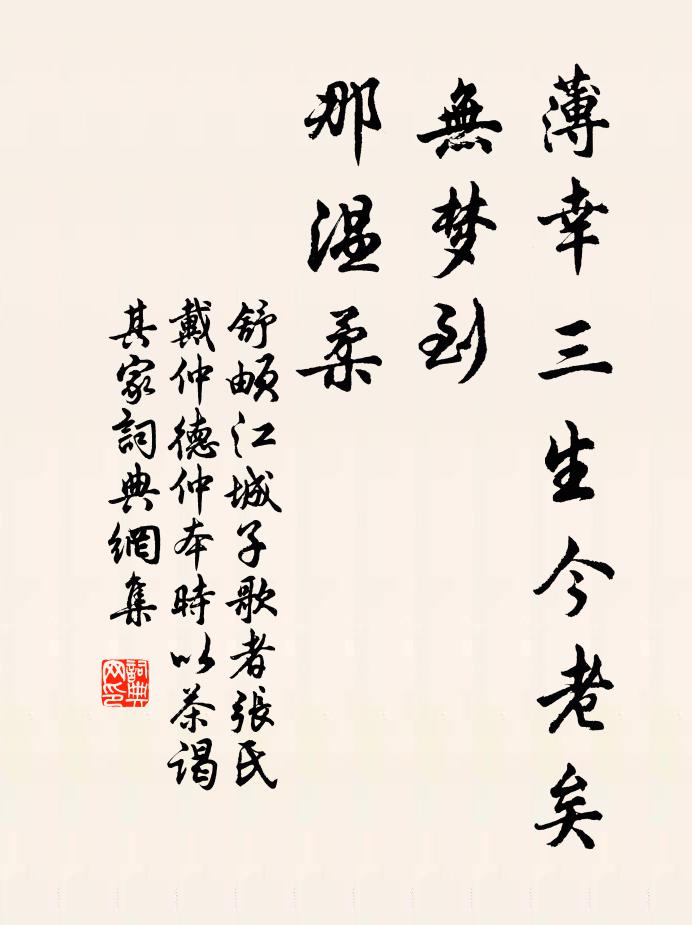 薄幸三生今老矣
無梦到
那温柔
舒頔江城子歌者張氏
戴仲德仲本時以茶谒
其家詞典網集
詞典网印